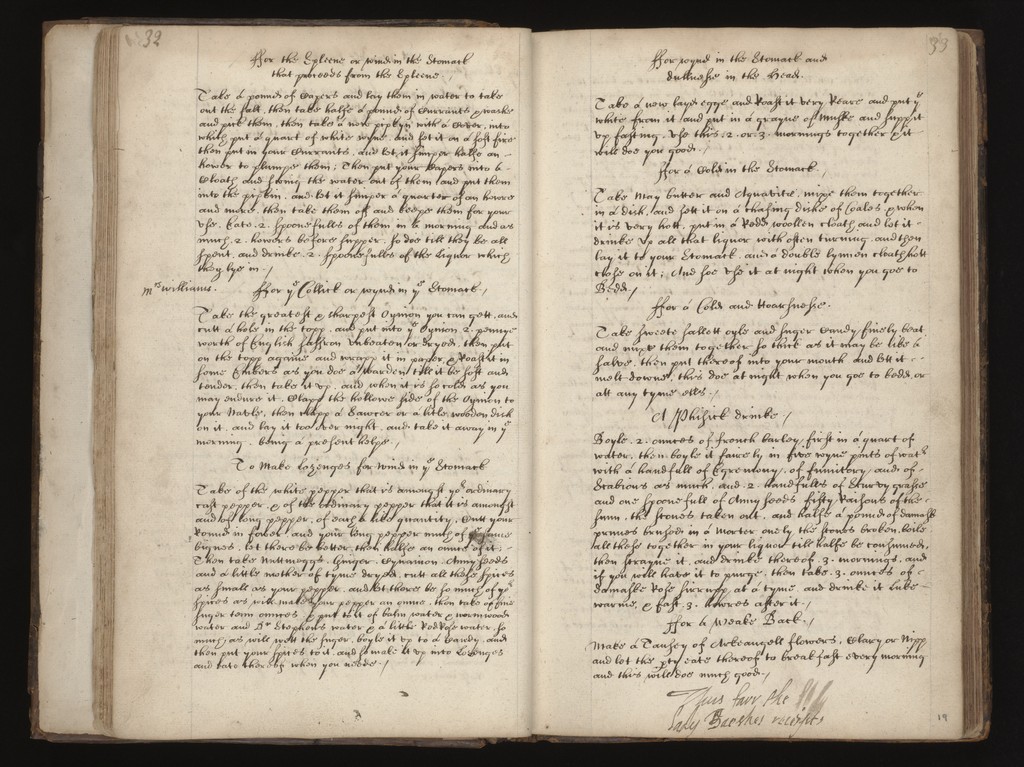 32
ffor the Spleene or wind in the Stomack
that proceeds from the Spleene /
Take a pound of Capers and lay them in water to take
out the salt, then take halfe a pound of Currants, washe
and pick them, then take a new pipkyn with a Cover, into
which put a quart of white wyne, and set it on a soft fire
then put in your Currants, and let it simper halfe an
hower to plumpe them; Then put your Capers into a
Cloath and swing the water out of them and put them
into the pipkin, and let it simper a quarter of an howre
and more, then take them off and keepe them for your
vse. Eate .2. spoonefulls of them in a morning and as
much .2. howers before supper, so doe till they be all
spent, and drinke .2. spoonefulls of the Liquor which
they lye in /
Mrs Williams. ffor ye Collick or wynd in ye Stomack /
Take the greatest & sharpest Oynion you can gett, and
cutt a hole in the topp, and put into ye Oynion 2. pennye
worth of English saffron vnbeaten or dryed, then put
on the topp againe and wrapp it in paper & Roast it in
some Embers as you doe a warden till it be soft and
tender, then take it vp, and when it is so cold as you
may endure it, Clapp the hollowe side of the Oynion to
your Navle, then clapp a Sawcer or a litle wooden dish
on it, and lay it too over night, and take it away in ye
morning. being a present helpe /
To Make Lozenges for wind in ye Stomack
Take of the white pepper that is amongst yor ordinary
cast pepper, & of the ordinary pepper that is amongst
and of long pepper, of each a like quantity, Cutt your
round in fower, and your long pepper much of ye same
bignes, let there be better then halfe an ounce of it;
Then take Nuttmeggs, Ginger, Cynamon, Anny seeds
and a little mother of tyme dryed, cutt all these spices
as small as your pepper, and let there be so much of yor
spices as will make your pepper an ounce, then take of fine
suger term ounces, & put to it of balm water & wormwood
water and Dr Stephens water & a little Red Rose water, so
much as will wett the suger, boyle it vp to a Candy, and
then put your spices to it, and so make it vp into Lozenges
and eate thereof when you neede /
33
ffor wynd in the Stomack and
dullnesse in the Head.
Take a new layd egge and Roast it very Reare and put ye
white from it, and put in a grayne of Muske and supp it
vp fasting. vse this .2. or .3. mornings together & it
will doe you good /
ffor a Cold in the Stomack /
Take May butter and Aquavite, mixe them together
in a dish, and sett it on a chafing dishe of Coales & when
it is very hott, put in a Redd woollen cloath and let it
drinke vp all that liquor with often turning, and then
lay it to your Stomack, and a double lynnen cloath hott
close on it; And soe vse it at night when you goe to
Bedd /
ffor a Cold and Hoarsnesse.
Take sweete sallett oyle and suger Candy finely beat
and mixe them together so thick as it may be like a
salve, then put thereof into your mouth and lett it
melt downe, this doe at night when you goe to bedd, or
att any tyme ells.
A Phisick drinke /
Boyle .2. ounces of french barley, first in a quart of
water, then boyle it fairely in five wyne pints of watr
with a handfull of Egremony, of fumitory, and of
Scabious as much, and .2. handfulls of Scurvy grasse
and one spoonefull of Anny seeds fifty Raisons of the
sunn, the stones taken out, and halfe a pound of damask
prunes brused in a Morter onely the stones broken, boile
all these together in your liquor till halfe be consumed,
then strayne it, and drinke thereof .3. mornings, and
if you will have it to purge, then take .3. ounces of
damaske Rose sirrupp, at a tyme, and drinke it Luke
warme, & fast .3. howres after it /
ffor a Weake Back /
Make a Tansey of Arkeangell flowers, Clary or Nipp
and let the pty eate thereof to breakfast every morning
and this will doe much good /
Thus farr the
Lady receipts
19